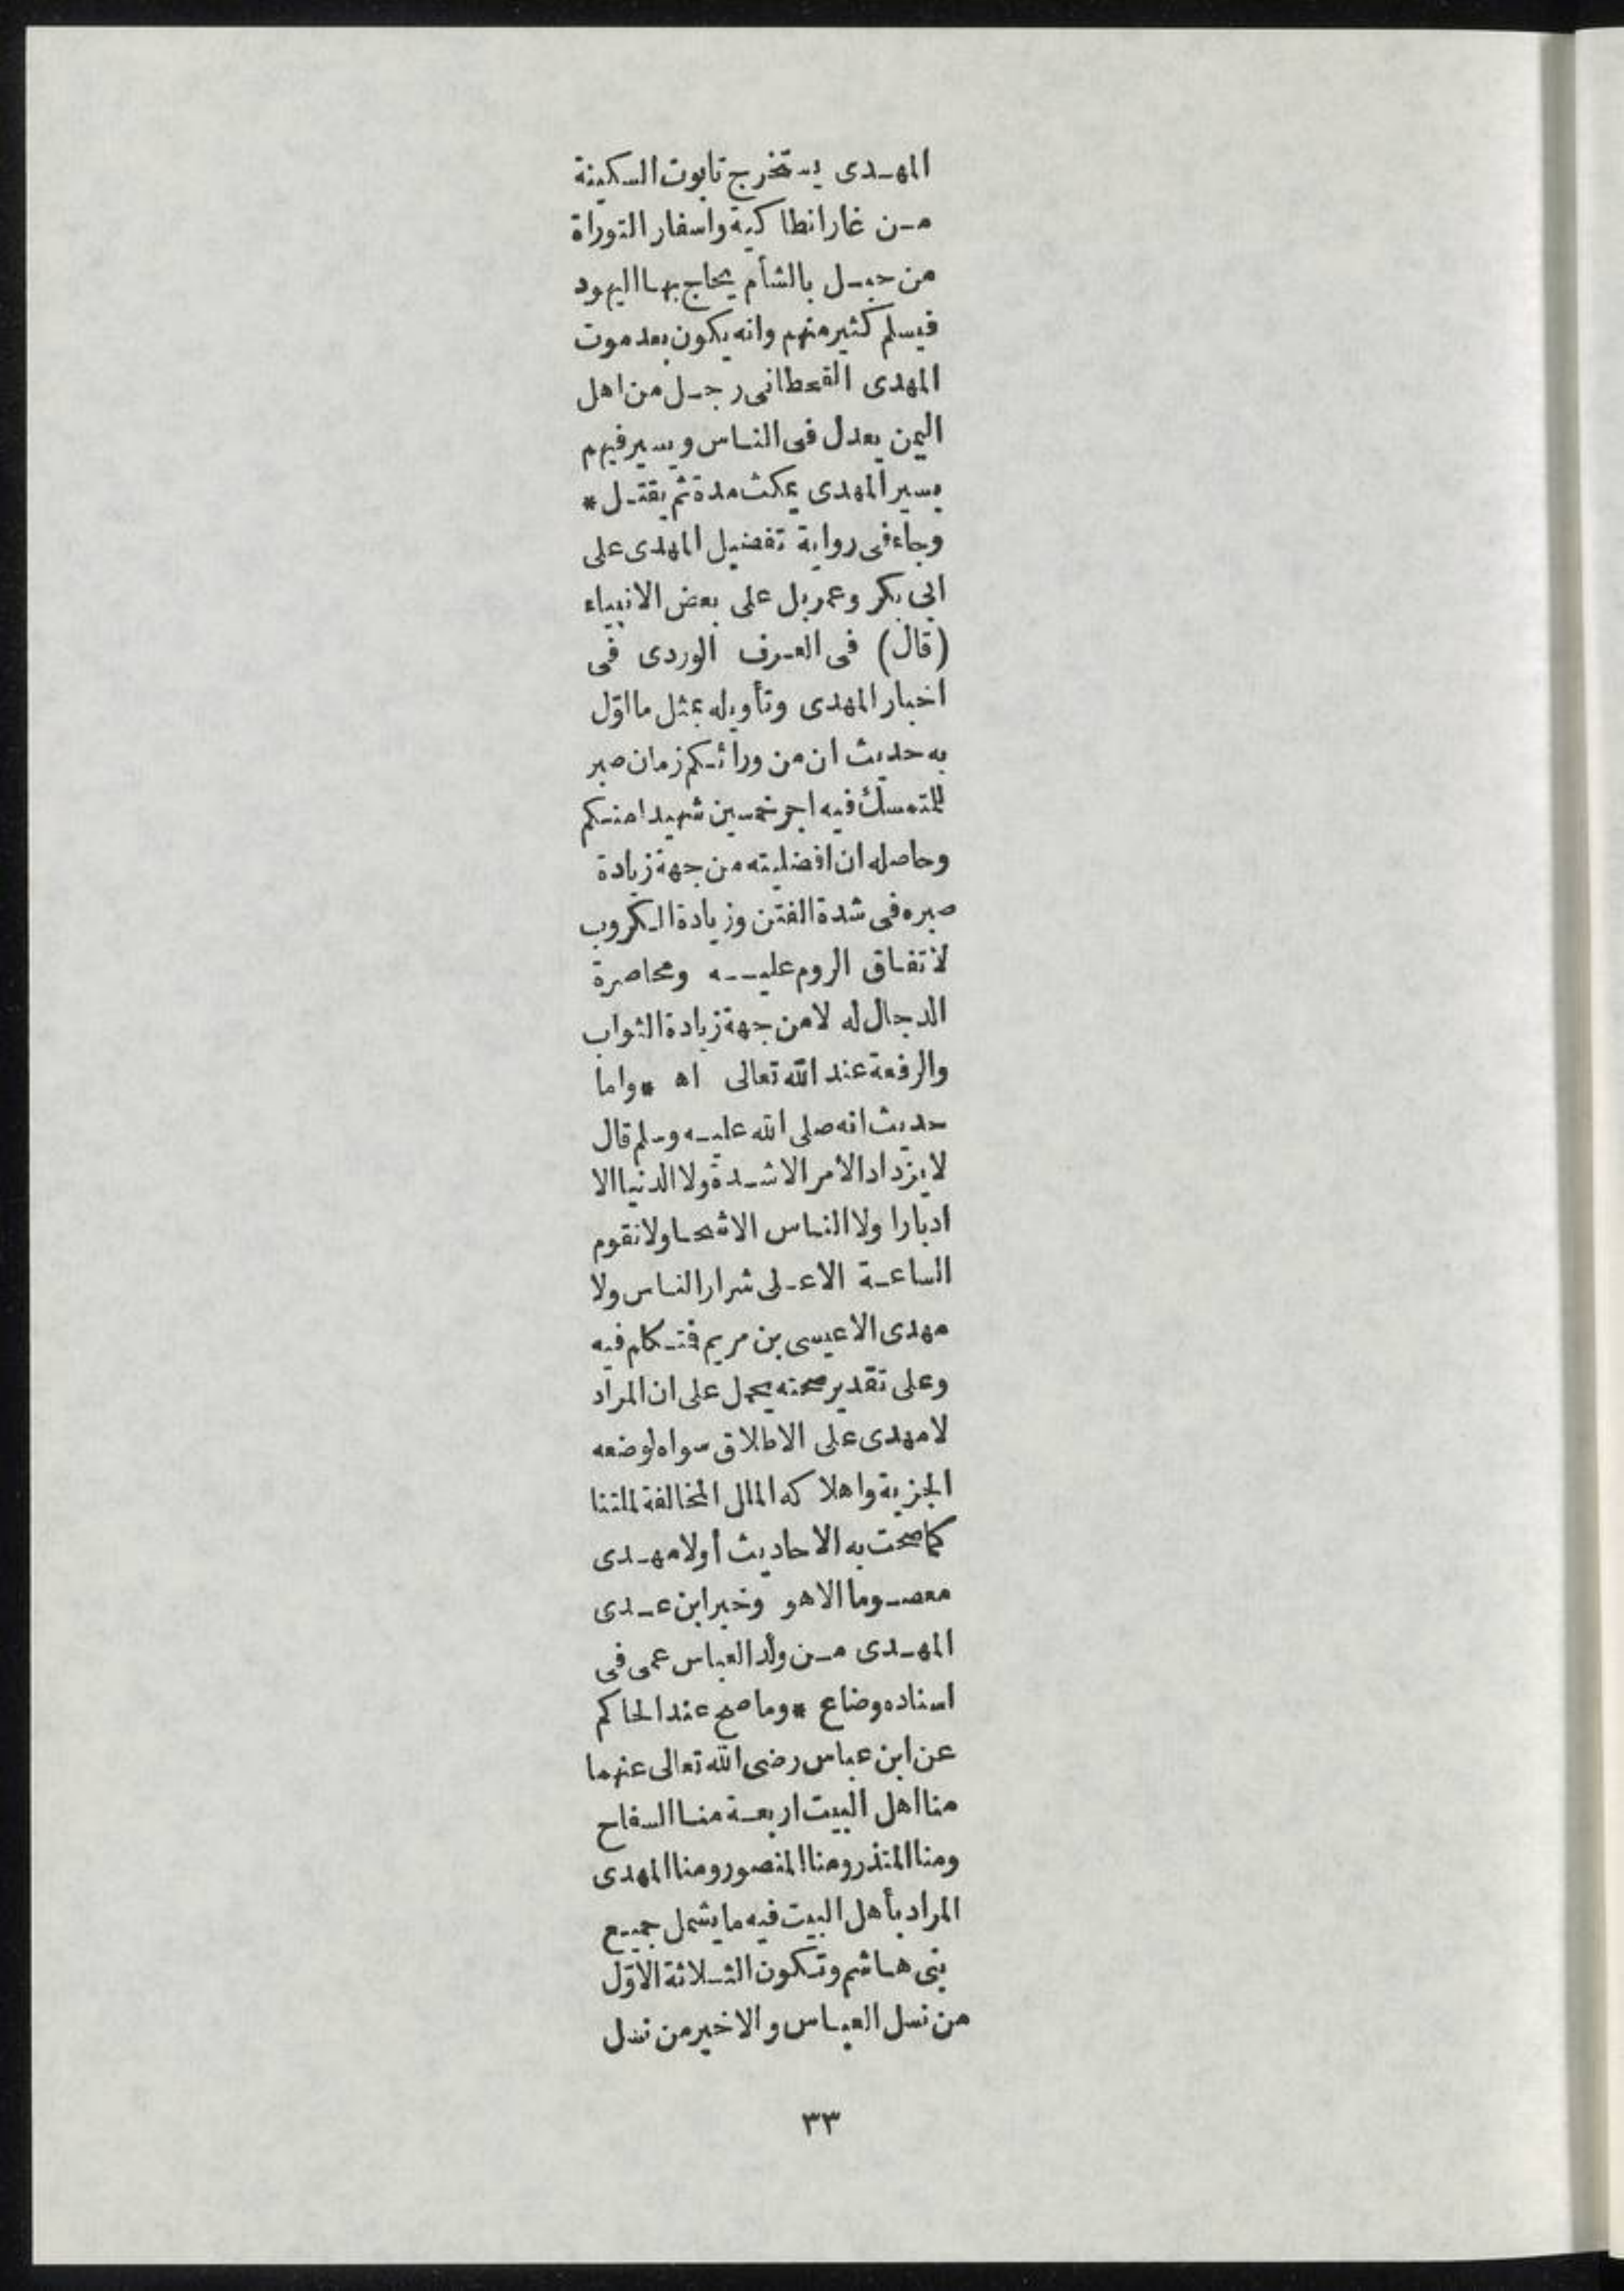 المهدى يستخرج تابوت السكينة
من غار انطاكية واسفار التوراة
من جبل بالشأم يحاج بها اليهود
فيسلم كثير منهم وانه يكون بعد موت
المهدى القحطانى رجل من اهل
اليمن يعدل فى الناس ويسير فيهم
بسير المهدى يمكث مدة ثم يقتل *
وجاء فى رواية تفضيل المهدى على
ابى بكر وعمر بل على بعض الانبياء
(قال) فى العرف الوردى فى
اخبار المهدى وتأويله بمثل ما اوّل
به حديث ان من ورائكم زمان صبر
للمتمسك فيه اجر خمسين شهيدا منكم
وحاصله ان افضليته من جهة زيادة
صبره فى شدة الفتن وزيادة الكروب
لاتفاق الروم عليه ومحاصرة
الدجال له لا من جهة زيادة الثواب
والرفعة عند الله تعالى اه * واما
حديث انه صلى الله عليه وسلم قال
لا يزداد الأمر الا شدة ولا الدنيا الا
ادبارا ولا الناس الا شحا ولا تقوم
الساعة الا على شرار الناس ولا
مهدى الا عيسى بن مريم فتكلم فيه
وعلى تقدير صحته يحمل على ان المراد
لا مهدى على الاطلاق سواه لوضعه
الجزية واهلاكه الملل المخالفة لملتنا
كما صحت به الاحاديث أو لا مهدى
معصوما الا هو وخبر ابن عدى
المهدى من ولد العباس عمى فى
اسناده وضاع * وما صح عند الحاكم
عن ابن عباس رضى الله تعالى عنهما
منا اهل البيت اربعة منا السفاح
ومنا المنذر ومنا المنصور ومنا المهدى
المراد بأهل البيت فيه ما يشمل جميع
بنى هاشم وتكون الثلاثة الاوّل
من نسل العباس والاخير من نسل
٣٣